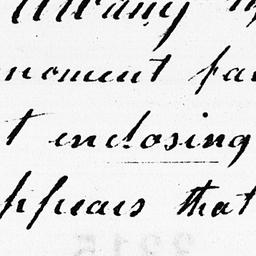 Albany
moment fa
t enclosing
appears that